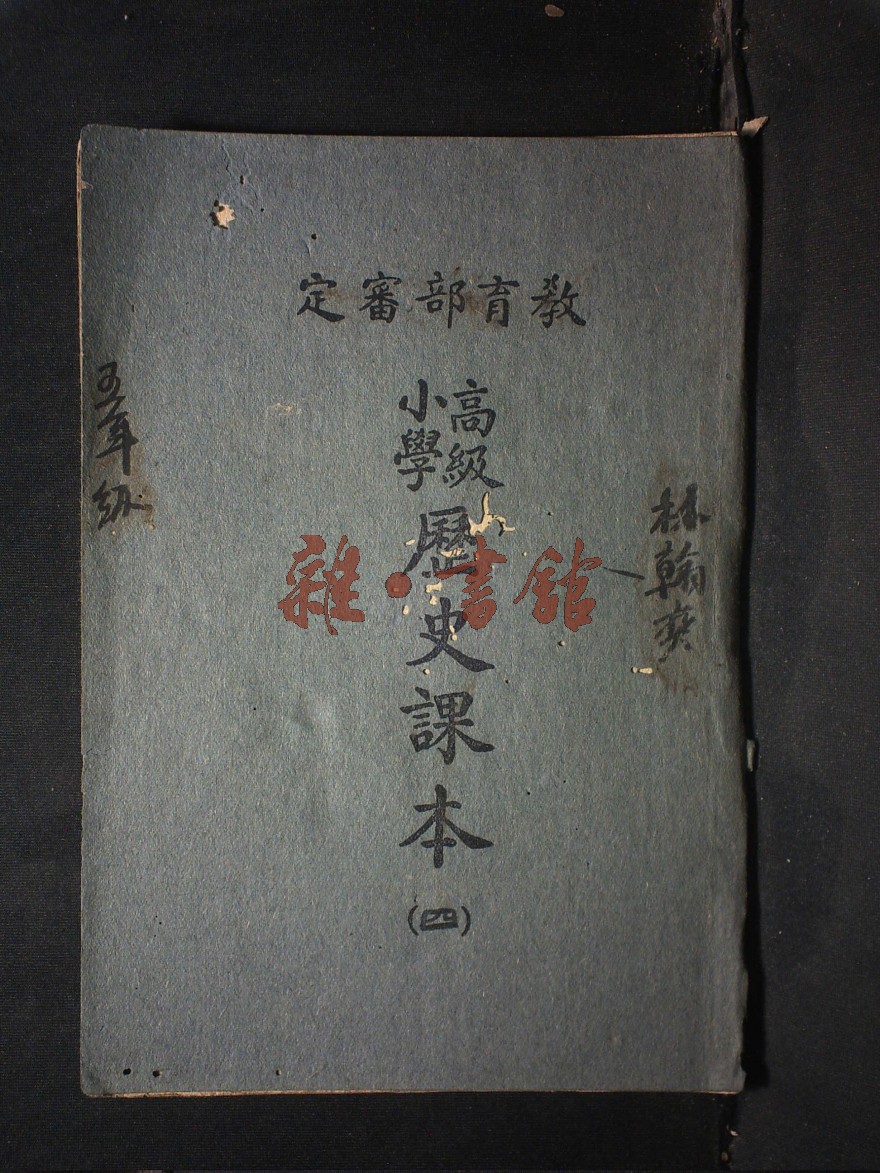 教育部審定
高級
小學
歷史課本
(四)
林翰爽
五年級
雜·書館